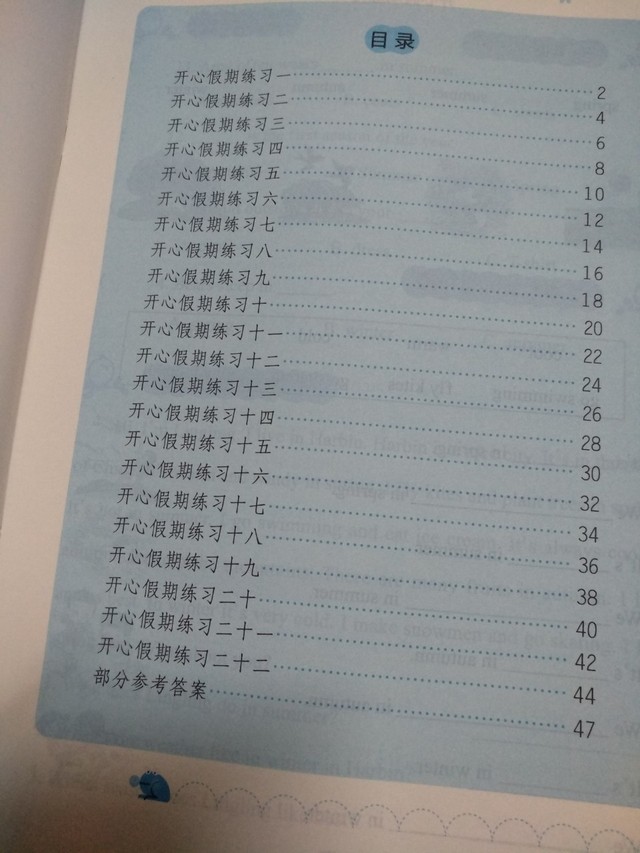 目录
开心假期练习一 2
开心假期练习二 4
开心假期练习三 6
开心假期练习四 8
开心假期练习五 10
开心假期练习六 12
开心假期练习七 14
开心假期练习八 16
开心假期练习九 18
开心假期练习十 20
开心假期练习十一 22
开心假期练习十二 24
开心假期练习十三 26
开心假期练习十四 28
开心假期练习十五 30
开心假期练习十六 32
开心假期练习十七 34
开心假期练习十八 36
开心假期练习十九 38
开心假期练习二十 40
开心假期练习二十一 42
开心假期练习二十二 44
部分参考答案 47